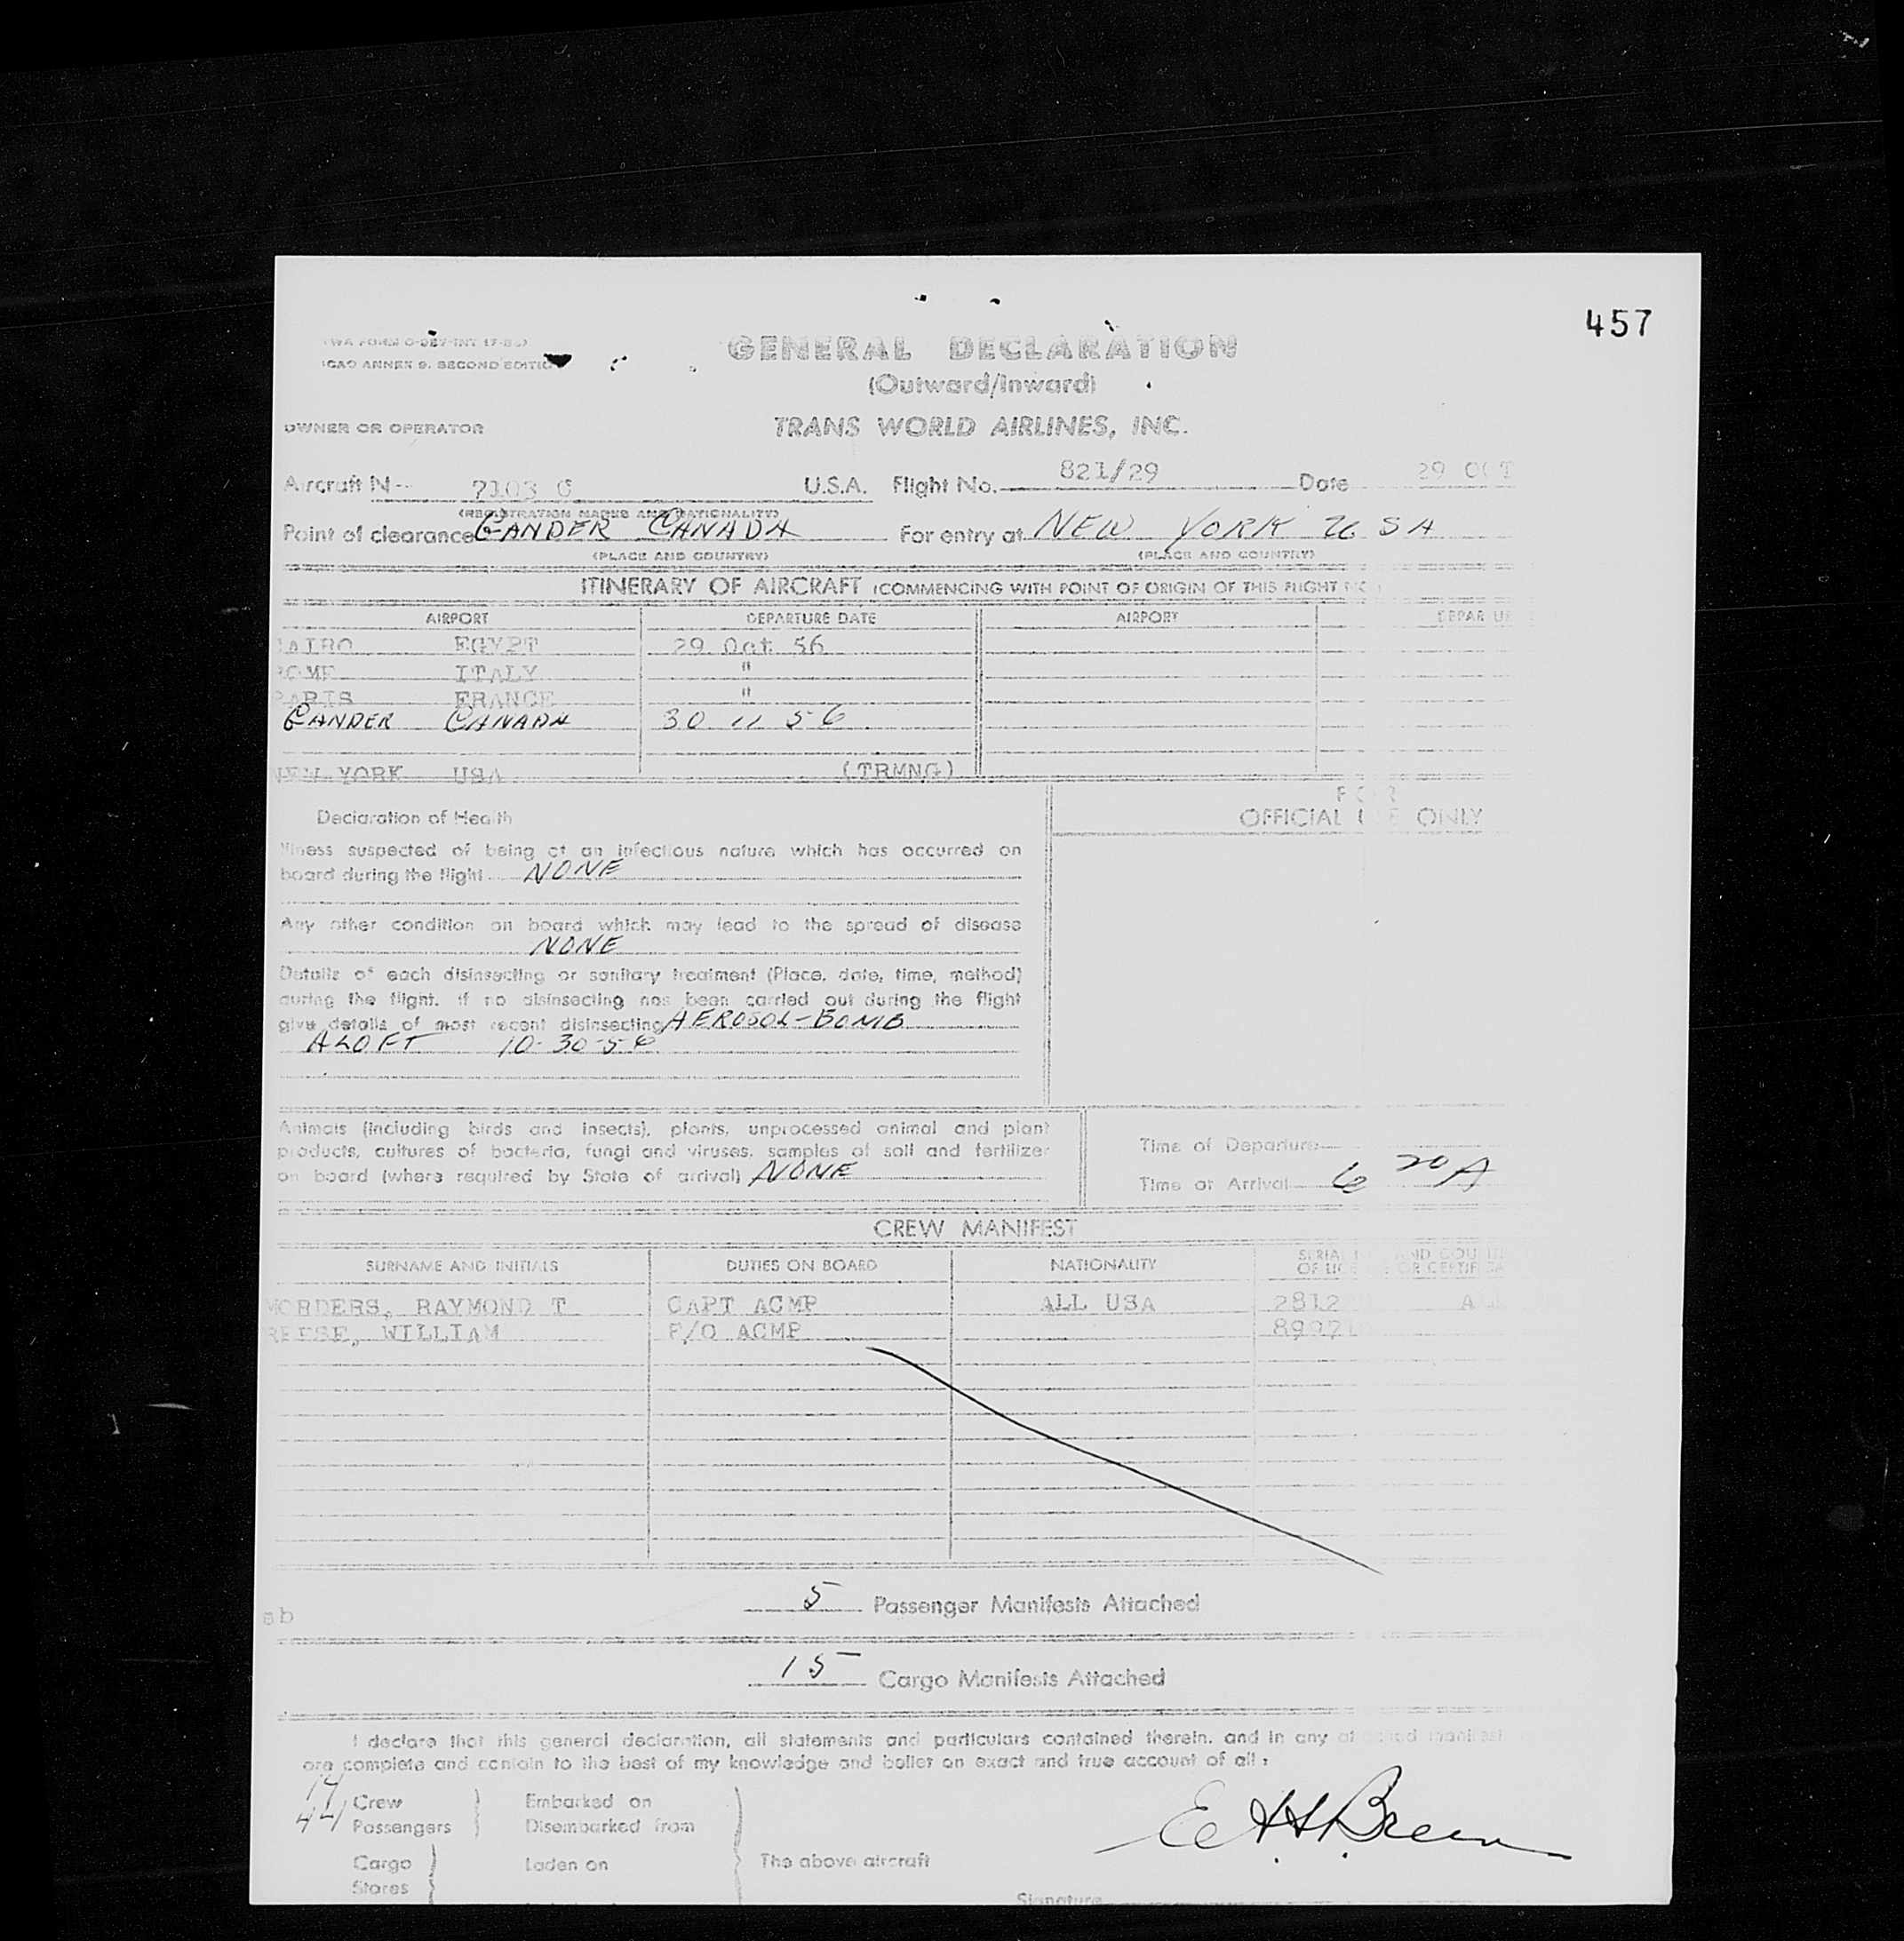 457
GENERAL DECLARATION
ICAO ANNEX 9. SECOND EDITIO
(Outward/Inward)
OWNER OR OPERATOR TRANS WORLD AIRLINES, INC.
Aircraft N 7103 C U.S.A. Flight No. 821/29 Date 29 OCT
(REGISTRATION MARKS AND NATIONALITY)
Point of clearance GANDER CANADA For entry at NEW YORK U S A
(PLACE AND COUNTRY) (PLACE AND COUNTRY)
ITINERARY OF AIRCRAFT (COMMENCING WITH POINT OF ORIGIN OF THIS FLIGHT
AIRPORT DEPARTURE DATE AIRPORT DEPAR U
CAIRO EGYPT 29 Oct 56
ROME ITALY "
PARIS FRANCE "
GANDER CANADA 30 " 56
NEW YORK USA (TRMNG)
Declaration of Health
FOR
OFFICIAL USE ONLY
Illness suspected of being of an infectious nature which has occurred on
board during the flight NONE
Any other condition on board which may lead to the spread of disease
NONE
Details of each disinsecting or sanitary treatment (Place, date, time, method)
during the flight. If no disinsecting has been carried out during the flight
give details of most recent disinsecting AEROSOL-BOMB
ALOFT 10-30-56
Animals (including birds and insects), plants, unprocessed animal and plant
products, cultures of bacteria, fungi and viruses, samples of soil and fertilizer
on board (where required by State of arrival) NONE
Time of Departure
Time of Arrival 6 20 A
CREW MANIFEST
SURNAME AND INITIALS DUTIES ON BOARD NATIONALITY
MORDERS, RAYMOND T CAPT ACMP ALL USA 2812
REESE, WILLIAM F/O ACMP
5 Passenger Manifests Attached
ab
15 Cargo Manifests Attached
I declare that this general declaration, all statements and particulars contained therein, and in any attached manifest
are complete and contain to the best of my knowledge and belief an exact and true account of all:
Crew Embarked on
44 Passengers Disembarked from
Cargo Laden on The above aircraft
Stores
Signature